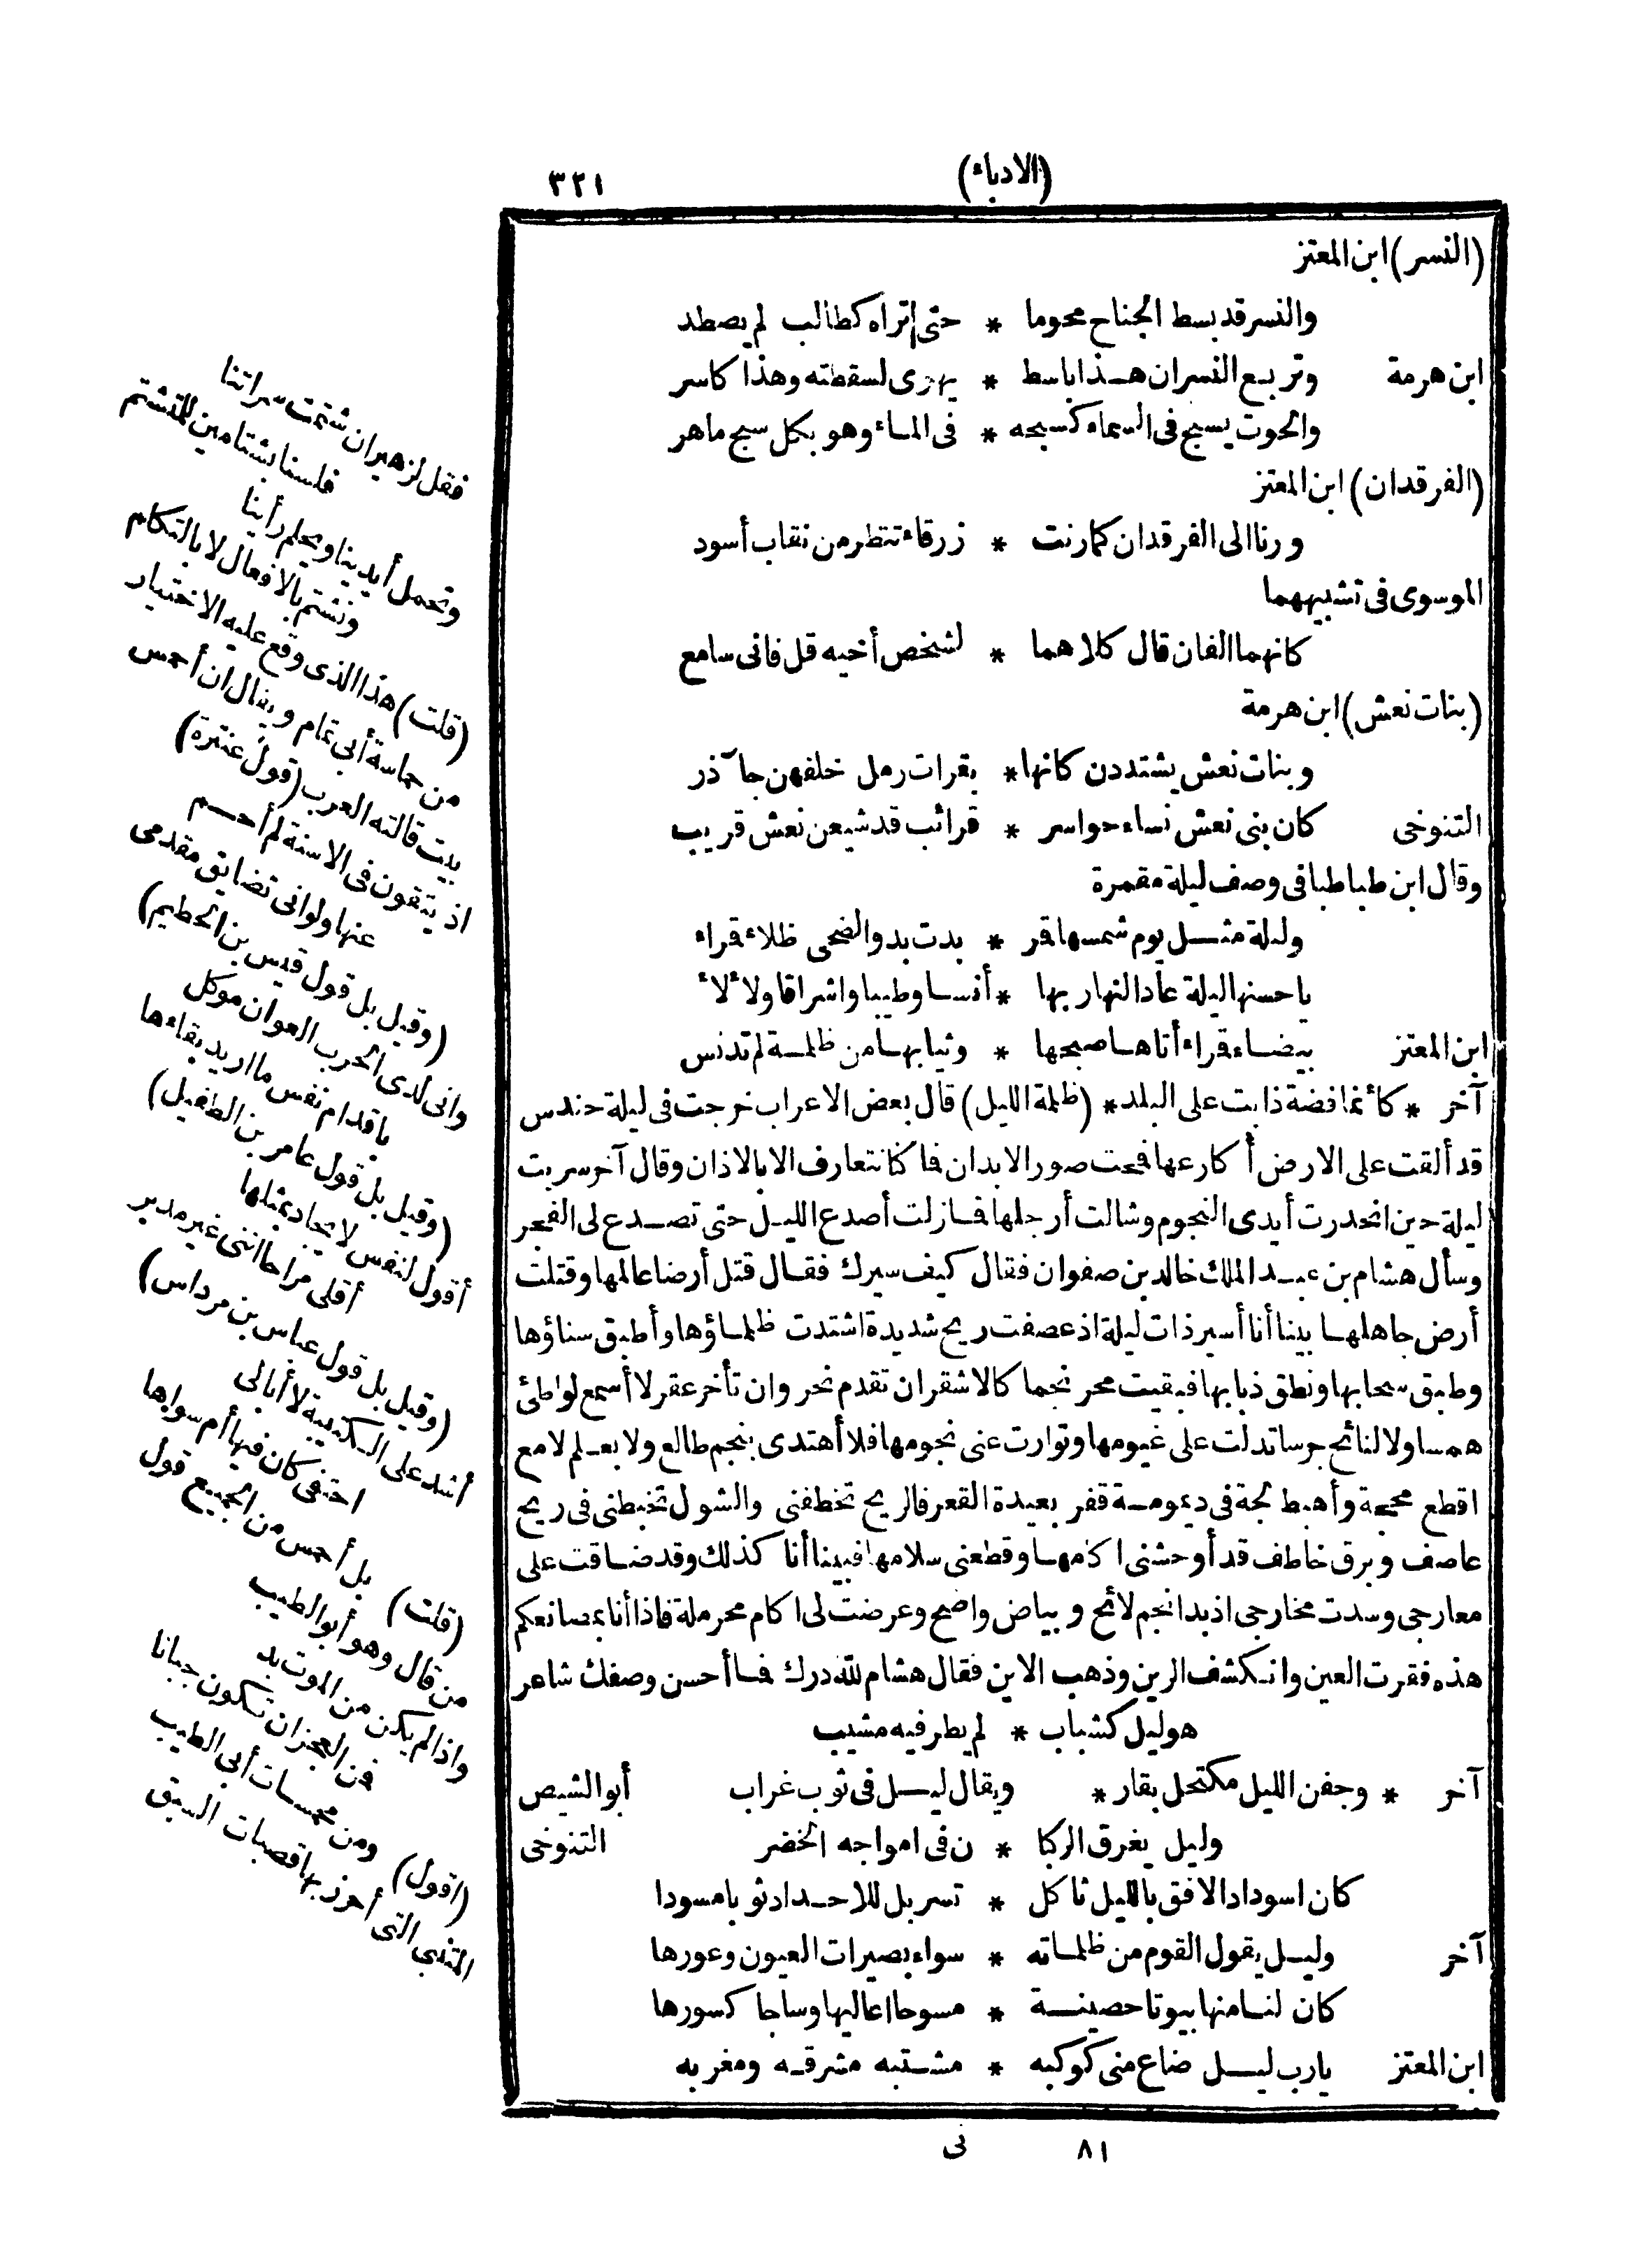 (الادباء)
٣٢١
(النسر) ابن المعتز
والنسر قد بسط الجناح محوما * حتى اتراه كطالب لم يصطد
ابن هرمة وتربع النسران هذا باسط * يهوى لسقطته وهذا كاسر
والحوت يسبح فى السماء كسبحه * فى الماء وهو بكل سبح ماهر
(الفرقدان) ابن المعتز
ورنا الى الفرقدان كما رنت * زرقاء تنظر من نقاب أسود
الموسوى فى تشبيههما
كانهما الفان قال كلاهما * لشخص أخيه قل فانى سامع
(بنات نعش) ابن هرمة
وبنات نعش يشتددن كانها * بقرات رمل خلفهن جآذر
التنوخى كان بنى نعش نساء حواسر * قرائب قد شيعن نعش قريب
وقال ابن طباطبا فى وصف ليلة مقمرة
وليلة مثل يوم شمسها قر * بدت بدو الضحى ظلاء قراء
ياحسنها ليلة عاد النهار بها * أنسا وطيبا واشراقا ولألأ
ابن المعتز بيضاء قراء أتاها صبحها * وثيابها من ظلمة لم تدنس
آخر * كأنما فضة ذابت على البلد * (ظلمة الليل) قال بعض الاعراب خرجت فى ليلة حندس
قد ألقت على الارض أكارعها فمحت صور الابدان فما كنا نتعارف الا بالاذان وقال آخر سريت
ليلة حين انحدرت أيدى النجوم وشالت أرجلها فما زلت أصدع الليل حتى تصدع لى الفجر
وسأل هشام بن عبد الملك خالد بن صفوان فقال كيف سيرك فقال قتل أرضا عالمها وقتلت
أرض جاهلها بينا أنا أسير ذات ليلة اذ عصفت ريح شديدة اشتدت ظلماؤها وأطبق سناؤها
وطبق سحابها ونطق ذبابها فبقيت محرنجما كالاشقر ان تقدم نحر وان تأخر عقر لا أسمع لواطئ
همسا ولا لنائح جرسا تدلت على غيومها وتوارت عنى نجومها فلا أهتدى بنجم طالع ولا بعلم لامع
اقطع محجة وأهبط لجة فى ديمومة قفر بعيدة القعر فالريح تخطفنى والشول تخبطنى فى ريح
عاصف وبرق خاطف قد أوحشنى اكامها وقطعنى سلامها فبينا أنا كذلك وقد ضاقت على
معارجى وسدت مخارجى اذ بدا نجم لائح وبياض واضح وعرضت لى اكام محرملة فاذا أنا بمصانعكم
هذه فقرت العين وانكشف الرين وذهب الاين فقال هشام لله درك فما أحسن وصفك شاعر
هو ليل كشباب * لم يطر فيه مشيب
آخر * وجفن الليل مكتحل بقار * ويقال ليل فى ثوب غراب أبو الشيص
وليل يغرق الركبا * ن فى امواجه الخضر التنوخى
كان اسوداد الافق بالليل ثاكل * تسربل للاحداد ثوبا مسودا
آخر وليل يقول القوم من ظلماته * سواء بصيرات العيون وعورها
كان لنا منها بيوتا حصينة * مسوحا اعاليها وساجا كسورها
ابن المعتز يارب ليل ضاع منى كوكبه * مشتبه مشرقه ومغربه
٨١ نى
فقل لزهير ان شتمت سراتنا
فلسنا بشتامين للمتشتم
وتحمل أيدينا ويحلم رأينا
ونشتم بالافعال لا بالتكلم
(قلت) هذا الذى وقع عليه الاختيار
من حماسة أبى تمام ويقال ان أحمس
بيت قالته العرب (قول عنترة)
اذ يتقون فى الاسنة لم أحم
عنها ولو انى تضايق مقدمى
(وقيل بل قول قيس بن الخطيم)
وانى لدى الحرب العوان موكل
باقدام نفس ما اريد بقاءها
(وقيل بل قول عامر بن الطفيل)
أقول لنفس لا يجاد بمثلها
أقلى مراحا اننى غير مدبر
(وقيل بل قول عباس بن مرداس)
أشد على الكتيبة لا أبالى
احتفى كان فيها أم سواها
(قلت) بل أحمس من الجميع قول
من قال وهو أبو الطيب
واذا لم يكن من الموت بد
فمن العجز ان تكون جبانا
(اقول) ومن محمسات أبى الطيب
المتنبى التى أحرز بها قصبات السبق